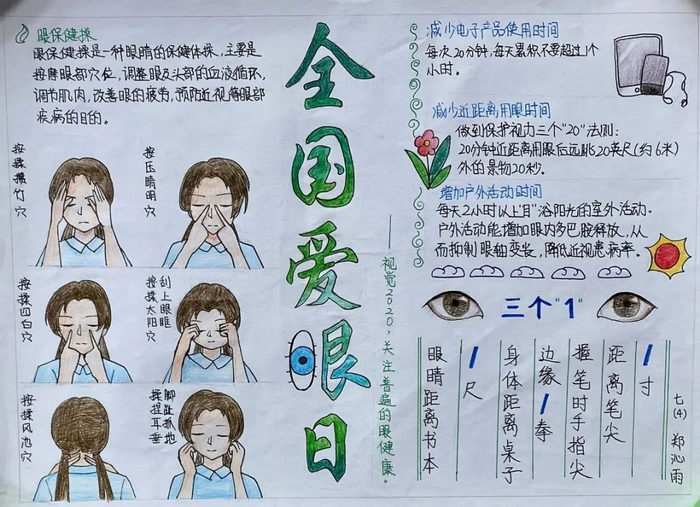 眼保健操
眼保健操是一种眼睛的保健体操,主要是
按摩眼部穴位,调整眼及头部的血液循环,
调节肌肉,改善眼的疲劳,预防近视等眼部
疾病的目的。
按揉攒竹穴
按压睛明穴
按揉四白穴
按揉太阳穴
刮上眼眶
按揉风池穴
揉捏耳垂
脚趾抓地
全国爱眼日
——视觉2020,关注普遍的眼健康。
减少电子产品使用时间
每次20分钟,每天累积不要超过1个
小时。
减少近距离用眼时间
做到保护视力三个"20"法则:
20分钟近距离用眼后远眺20英尺(约6米)
外的景物20秒。
增加户外活动时间
每天2小时以上"目"浴阳光的室外活动。
户外活动能增加眼内多巴胺释放,从
而抑制眼轴变长,降低近视患病率。
三个"1"
眼睛距离书本
1尺
身体距离桌子
边缘1拳
握笔时手指尖
距离笔尖
1寸
七(4) 郑沁雨